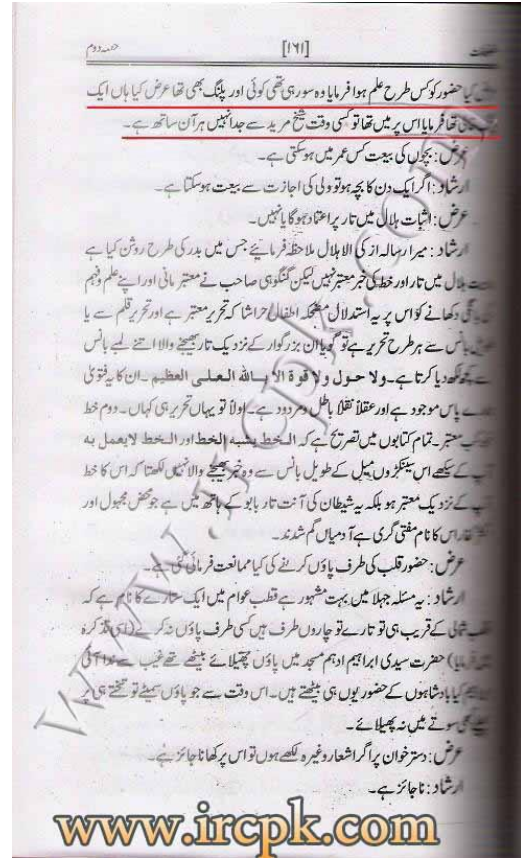 حصہ دوم [۱۶۱]
کیا حضور کو کس طرح علم ہوا فرمایا وہ سو رہی تھی کوئی اور پلنگ بھی تھا عرض کیا ہاں ایک
تھا فرمایا اس پر میں تھا تو کسی وقت شیخ مرید سے جدا نہیں ہر آن ساتھ ہے۔
عرض: بچوں کی بیعت کس عمر میں ہو سکتی ہے۔
ارشاد: اگر ایک دن کا بچہ ہو تو ولی کی اجازت سے بیعت ہو سکتا ہے۔
عرض: اثبات ہلال میں تار پر اعتماد ہوگا یا نہیں۔
ارشاد: میرا رسالہ از کی الاہلال ملاحظہ فرمایئے جس میں بدر کی طرح روشن کیا ہے
ہلال میں تار اور خط کی خبر معتبر نہیں لیکن گنگوہی صاحب نے معتبر مانی اور اپنے علم و فہم
دکھانے کو اس پر یہ استدلال مضحکہ اطفال تراشا کہ تحریر معتبر ہے اور تحریر قلم سے یا
بانس سے ہر طرح تحریر ہے تو گویا ان بزرگوار کے نزدیک تار بھیجنے والا اتنے لمبے بانس
لکھ دیا کرتا ہے۔ ولا حول ولا قوة الا بالله العلی العظیم ۔ ان کا یہ فتویٰ
پاس موجود ہے اور عقلاً نقلاً باطل و مردود ہے۔ اولاً تو یہاں تحریر ہی کہاں۔ دوم خط
معتبر۔ تمام کتابوں میں تصریح ہے کہ الخط یشبه الخط اور الخط لایعمل به
کے سیکھے اس سینکڑوں میل کے طویل بانس سے وہ خبر بھیجنے والا نہیں لکھتا کہ اس کا خط
کے نزدیک معتبر ہو بلکہ یہ شیطان کی آنت تار بابو کے ہاتھ میں ہے جو محض مجہول اور
اس کا نام مفتی گری ہے آدمیاں گم شدند۔
عرض: حضور قلب کی طرف پاؤں کرنے کی کیا ممانعت فرمائی گئی ہے۔
ارشاد: یہ مسئلہ جہلا میں بہت مشہور ہے قطب عوام میں ایک ستارے کا نام ہے کہ
شمالی کے قریب ہی تو تارے تو چاروں طرف ہیں کسی طرف پاؤں نہ کرے (اسی تذکرہ
فرمایا) حضرت سیدی ابراہیم ادہم مسجد میں پاؤں پھیلائے بیٹھے تھے غیب سے ندا آئی
کیا بادشاہوں کے حضور یوں ہی بیٹھتے ہیں۔ اس وقت سے جو پاؤں سمیٹے تو تختے ہی پر
سوتے میں نہ پھیلائے۔
عرض: دسترخوان پر اگر اشعار وغیرہ لکھے ہوں تو اس پر کھانا جائز ہے۔
ارشاد: ناجائز ہے۔
www.ircpk.com
www.ircpk.com